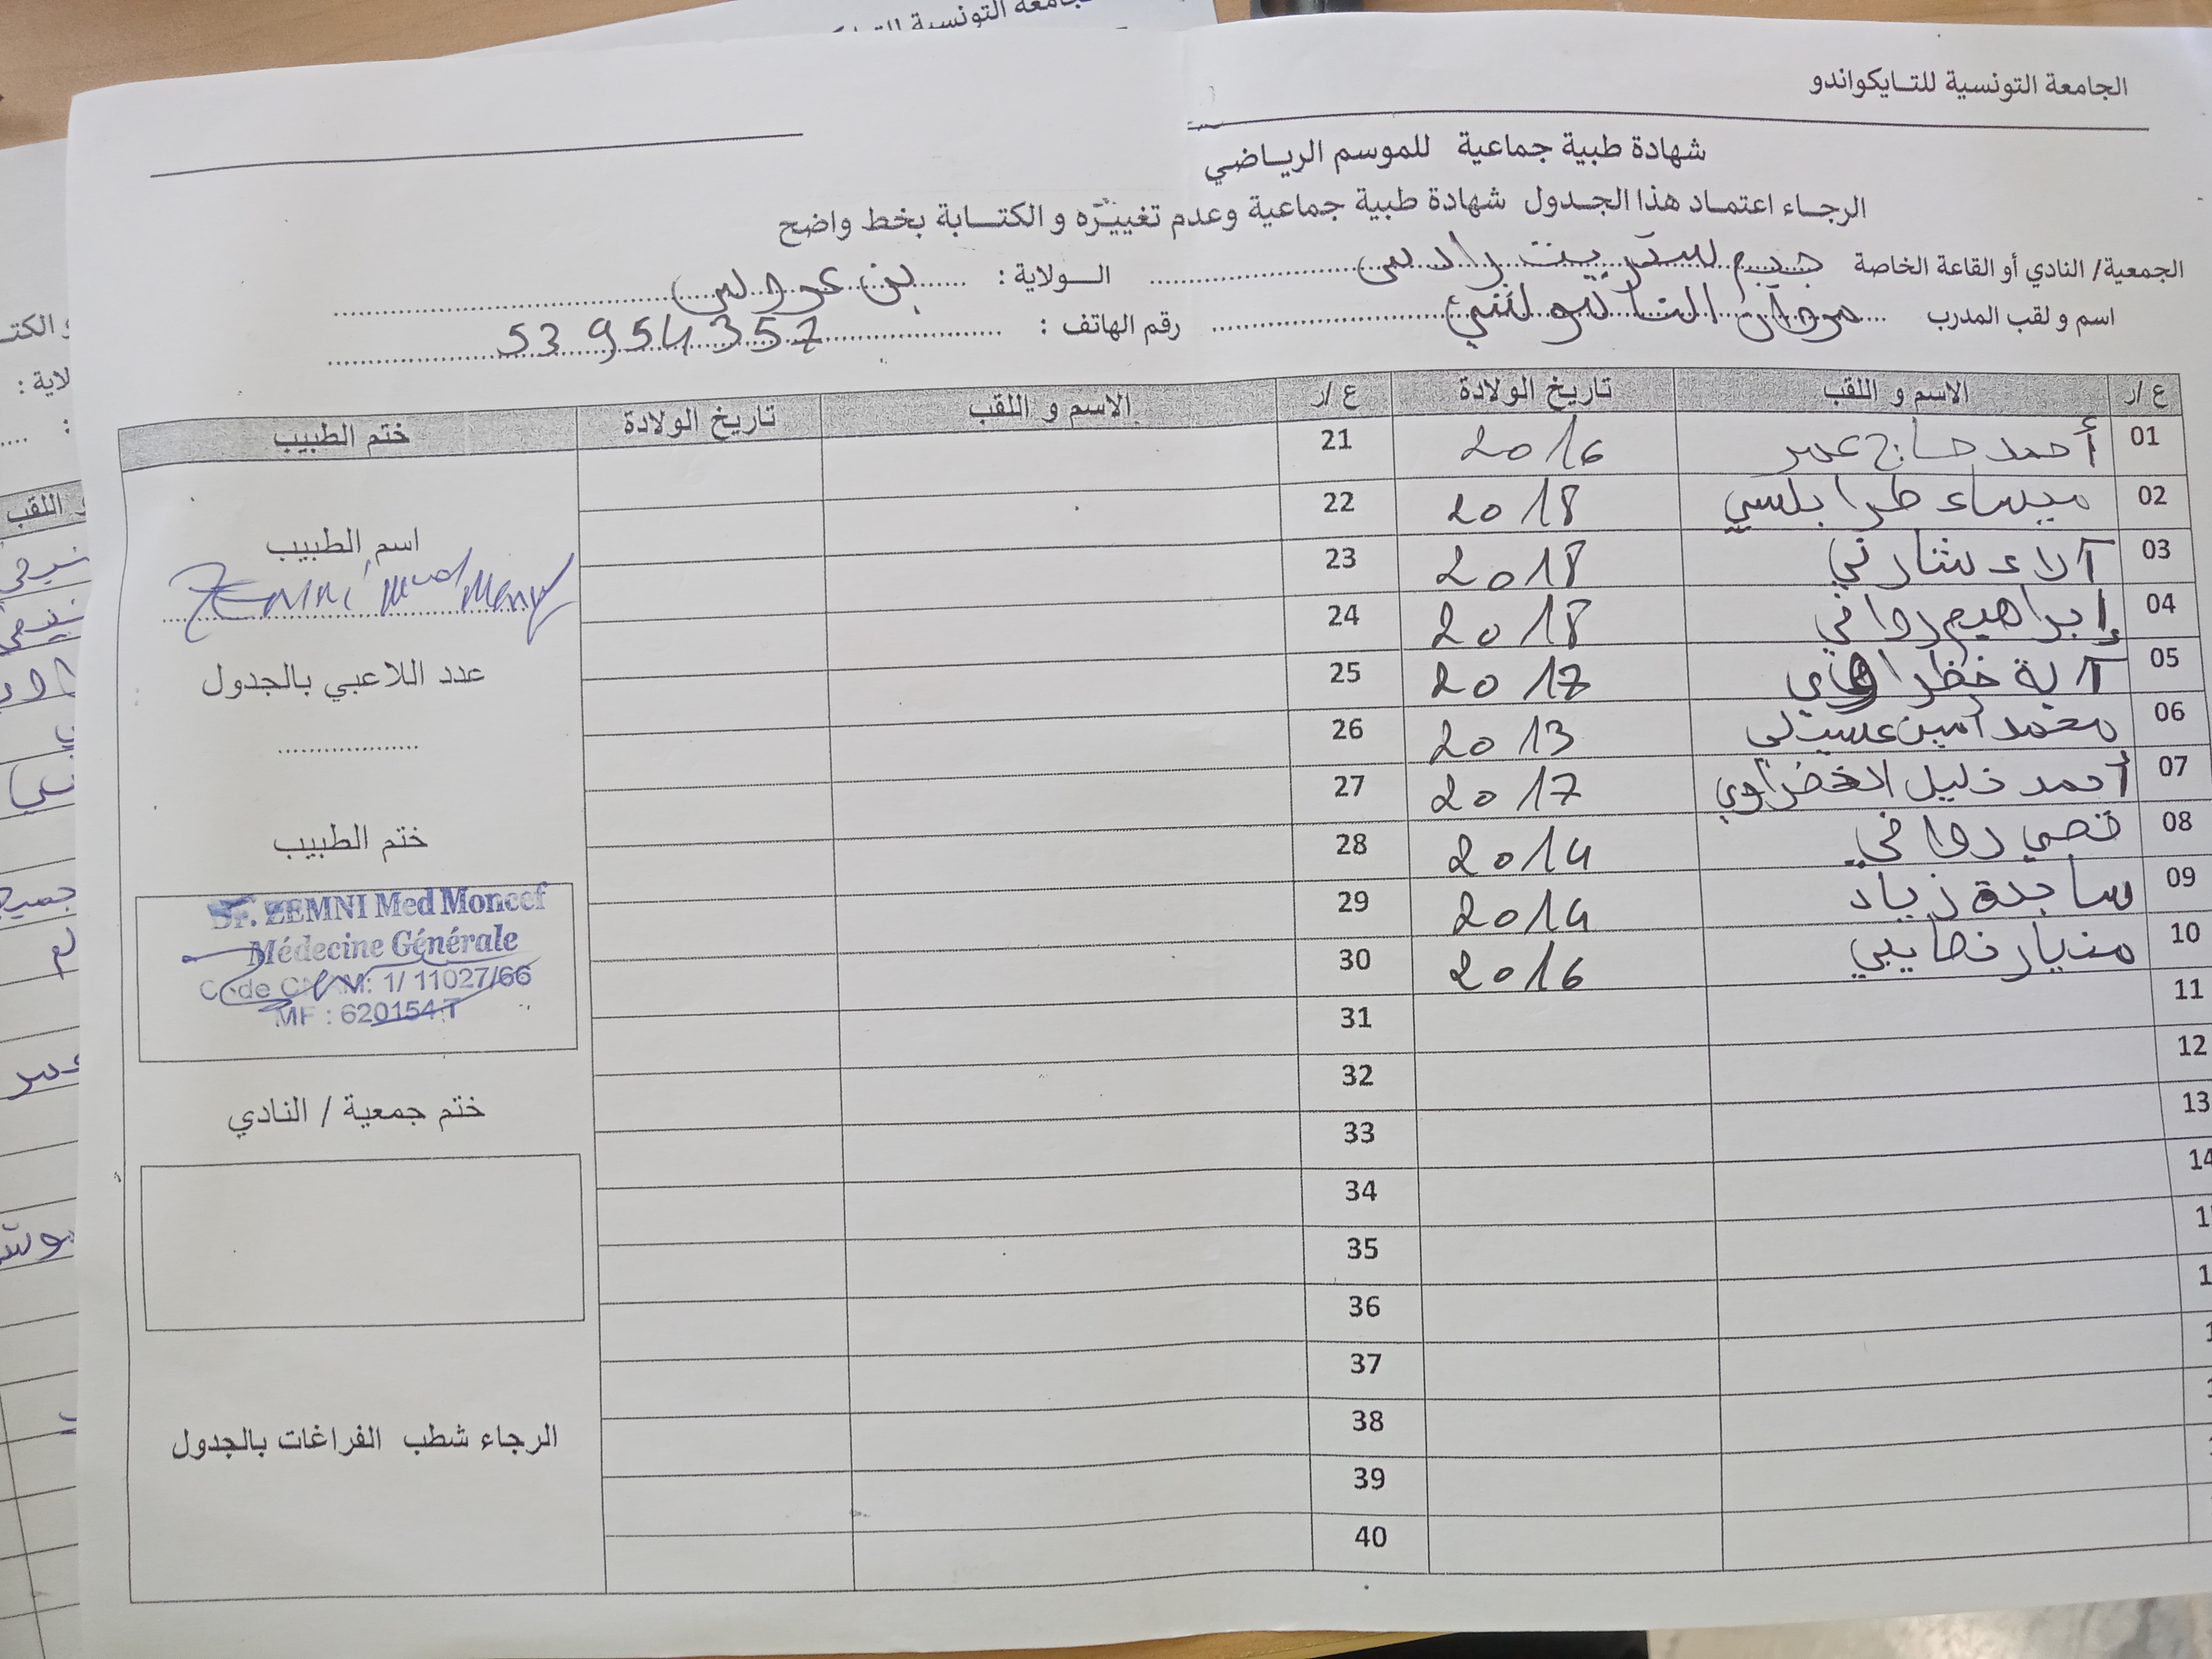 الجامعة التونسية للتايكواندو
شهادة طبية جماعية للموسم الرياضي
الرجاء اعتماد هذا الجدول شهادة طبية جماعية وعدم تغييره و الكتابة بخط واضح
الجمعية/ النادي أو القاعة الخاصة جيم سبريت رادس الولاية : بن عروس
اسم و لقب المدرب مروان رقم الهاتف : 53 954 357
ع /ر الاسم و اللقب تاريخ الولادة ع /ر الاسم و اللقب تاريخ الولادة ختم الطبيب
01 أحمد حاج عمر 2016 21
02 ميساء طرابلسي 2018 22
03 آلاء شارني 2018 23
04 إبراهيم روافي 2018 24
05 آية 2017 25
06 محمد أمين 2013 26
07 أحمد خليل الخضراوي 2017 27
08 قصي روافي 2014 28
09 ساجدة زياد 2014 29
10 مهيار نصايبي 2016 30
11 31
12 32
13 33
14 34
35
36
37
38
39
40
اسم الطبيب
ZEMNI Med
عدد اللاعبي بالجدول
ختم الطبيب
Dr. ZEMNI Med Moncef
Médecine Générale
Code CNAM: 1/ 11027/66
MF : 620154.T
ختم جمعية / النادي
الرجاء شطب الفراغات بالجدول